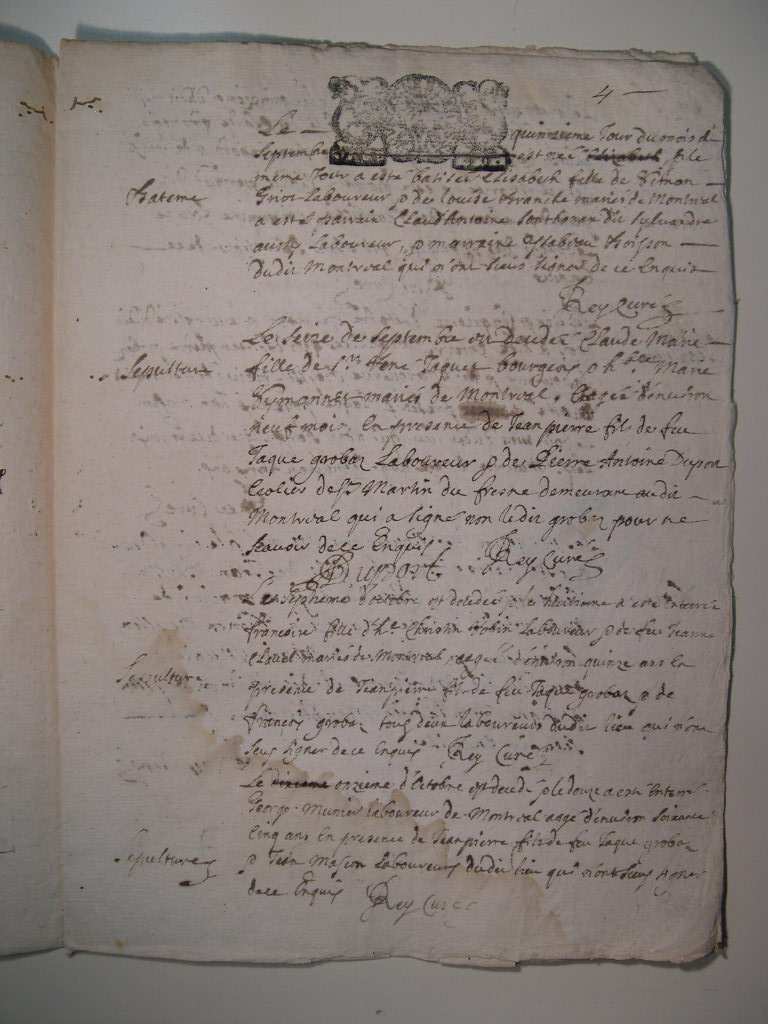 4
Le quinzieme Jour du mois d
septembre est neé Elizabeth, & le
même Jour a esté batisée Elisabeth fille de Simon
Bateme
Laboureur & de Louise mariés de Montreal
a esté parrain Claud Antoine du
aussy Laboureur, & marraine
dudit Montreal qui n'ont sceus signer de ce Enquis
Rey Curé
Le seize de septembre est decedeé Claude Marie
Sepulture
fille de Sr. Jaquet bourgeois & Marie
mariés de Montreal, aagée d'environ
neuf mois. En presence de Jeanpierre fils de feu
Jaque grobaz Laboureur & de Pierre Antoine Dupont
Ecolier de St Martin du fresne demeurant audit
Montreal qui a signé non ledit grobaz pour ne
scavoir de ce Enquis
Dupont. Rey Curé
Le septieme d'octobre est decedeé & le huitieme a esté Enterrée
francoise fille d'he. Robin Laboureur & de feu Jeanne
mariés de Montreal, aageé d'environ quinze ans En
Sepulture
presence de Jeanpierre fils de feu Jaque grobaz & de
francois grobaz tous deux laboureurs dudit lieu qui n'ont
sceus signer de ce Enquis Rey Curé
Le dixieme onzieme d'Octobre est decedé & le douze a esté Enterré
George Munier laboureur de Montreal aagé d'environ soixante
cinq ans En presence de Jeanpierre fils de feu Jaque grobaz
Sepulture
& Jean Masson Laboureurs dudit lieu qui n'ont sceus signer
de ce Enquis Rey Curé